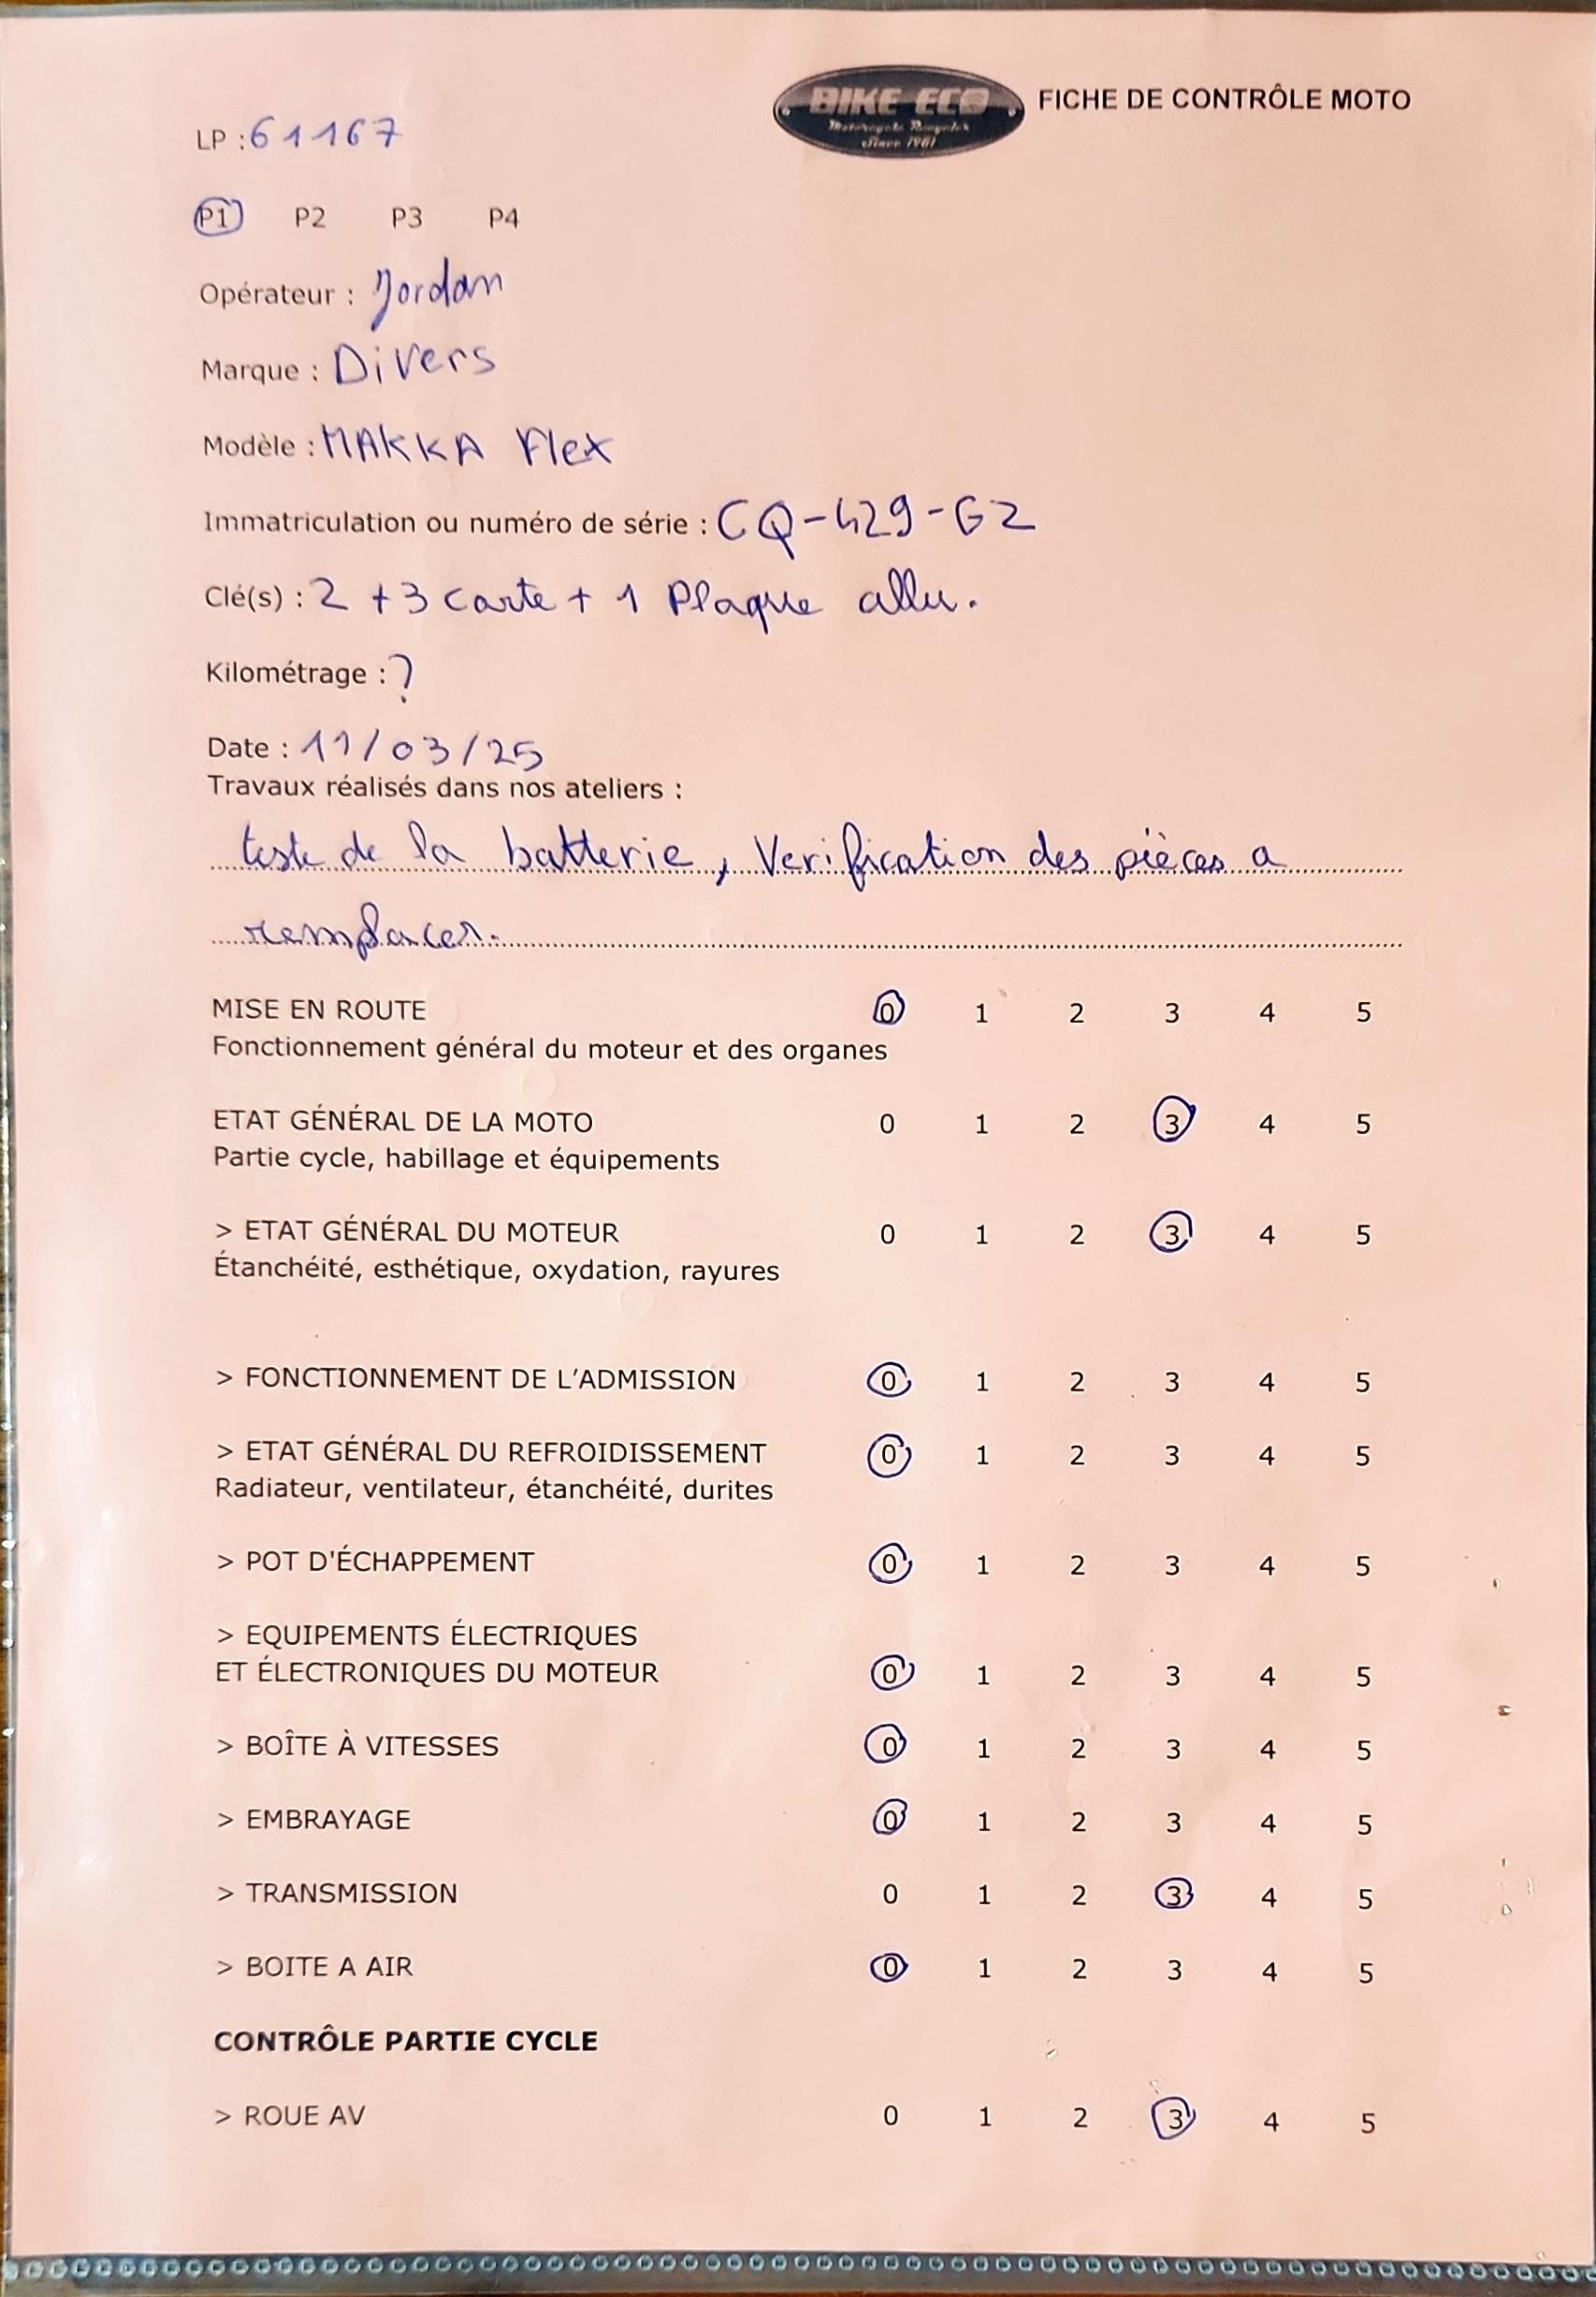 BIKE ECO
Motorcycle Recycler
Since 1961
FICHE DE CONTRÔLE MOTO
LP : 61167
P1 P2 P3 P4
Opérateur : Jordan
Marque : Divers
Modèle : MAKKA Flex
Immatriculation ou numéro de série : CQ-429-GZ
Clé(s) : 2 + 3 carte + 1 Plaque allu.
Kilométrage : ?
Date : 11/03/25
Travaux réalisés dans nos ateliers :
teste de la batterie, Verification des pièces a
remplacer.
MISE EN ROUTE 0 1 2 3 4 5
Fonctionnement général du moteur et des organes
ETAT GÉNÉRAL DE LA MOTO 0 1 2 3 4 5
Partie cycle, habillage et équipements
> ETAT GÉNÉRAL DU MOTEUR 0 1 2 3 4 5
Étanchéité, esthétique, oxydation, rayures
> FONCTIONNEMENT DE L'ADMISSION 0 1 2 3 4 5
> ETAT GÉNÉRAL DU REFROIDISSEMENT 0 1 2 3 4 5
Radiateur, ventilateur, étanchéité, durites
> POT D'ÉCHAPPEMENT 0 1 2 3 4 5
> EQUIPEMENTS ÉLECTRIQUES
ET ÉLECTRONIQUES DU MOTEUR 0 1 2 3 4 5
> BOÎTE À VITESSES 0 1 2 3 4 5
> EMBRAYAGE 0 1 2 3 4 5
> TRANSMISSION 0 1 2 3 4 5
> BOITE A AIR 0 1 2 3 4 5
CONTRÔLE PARTIE CYCLE
> ROUE AV 0 1 2 3 4 5